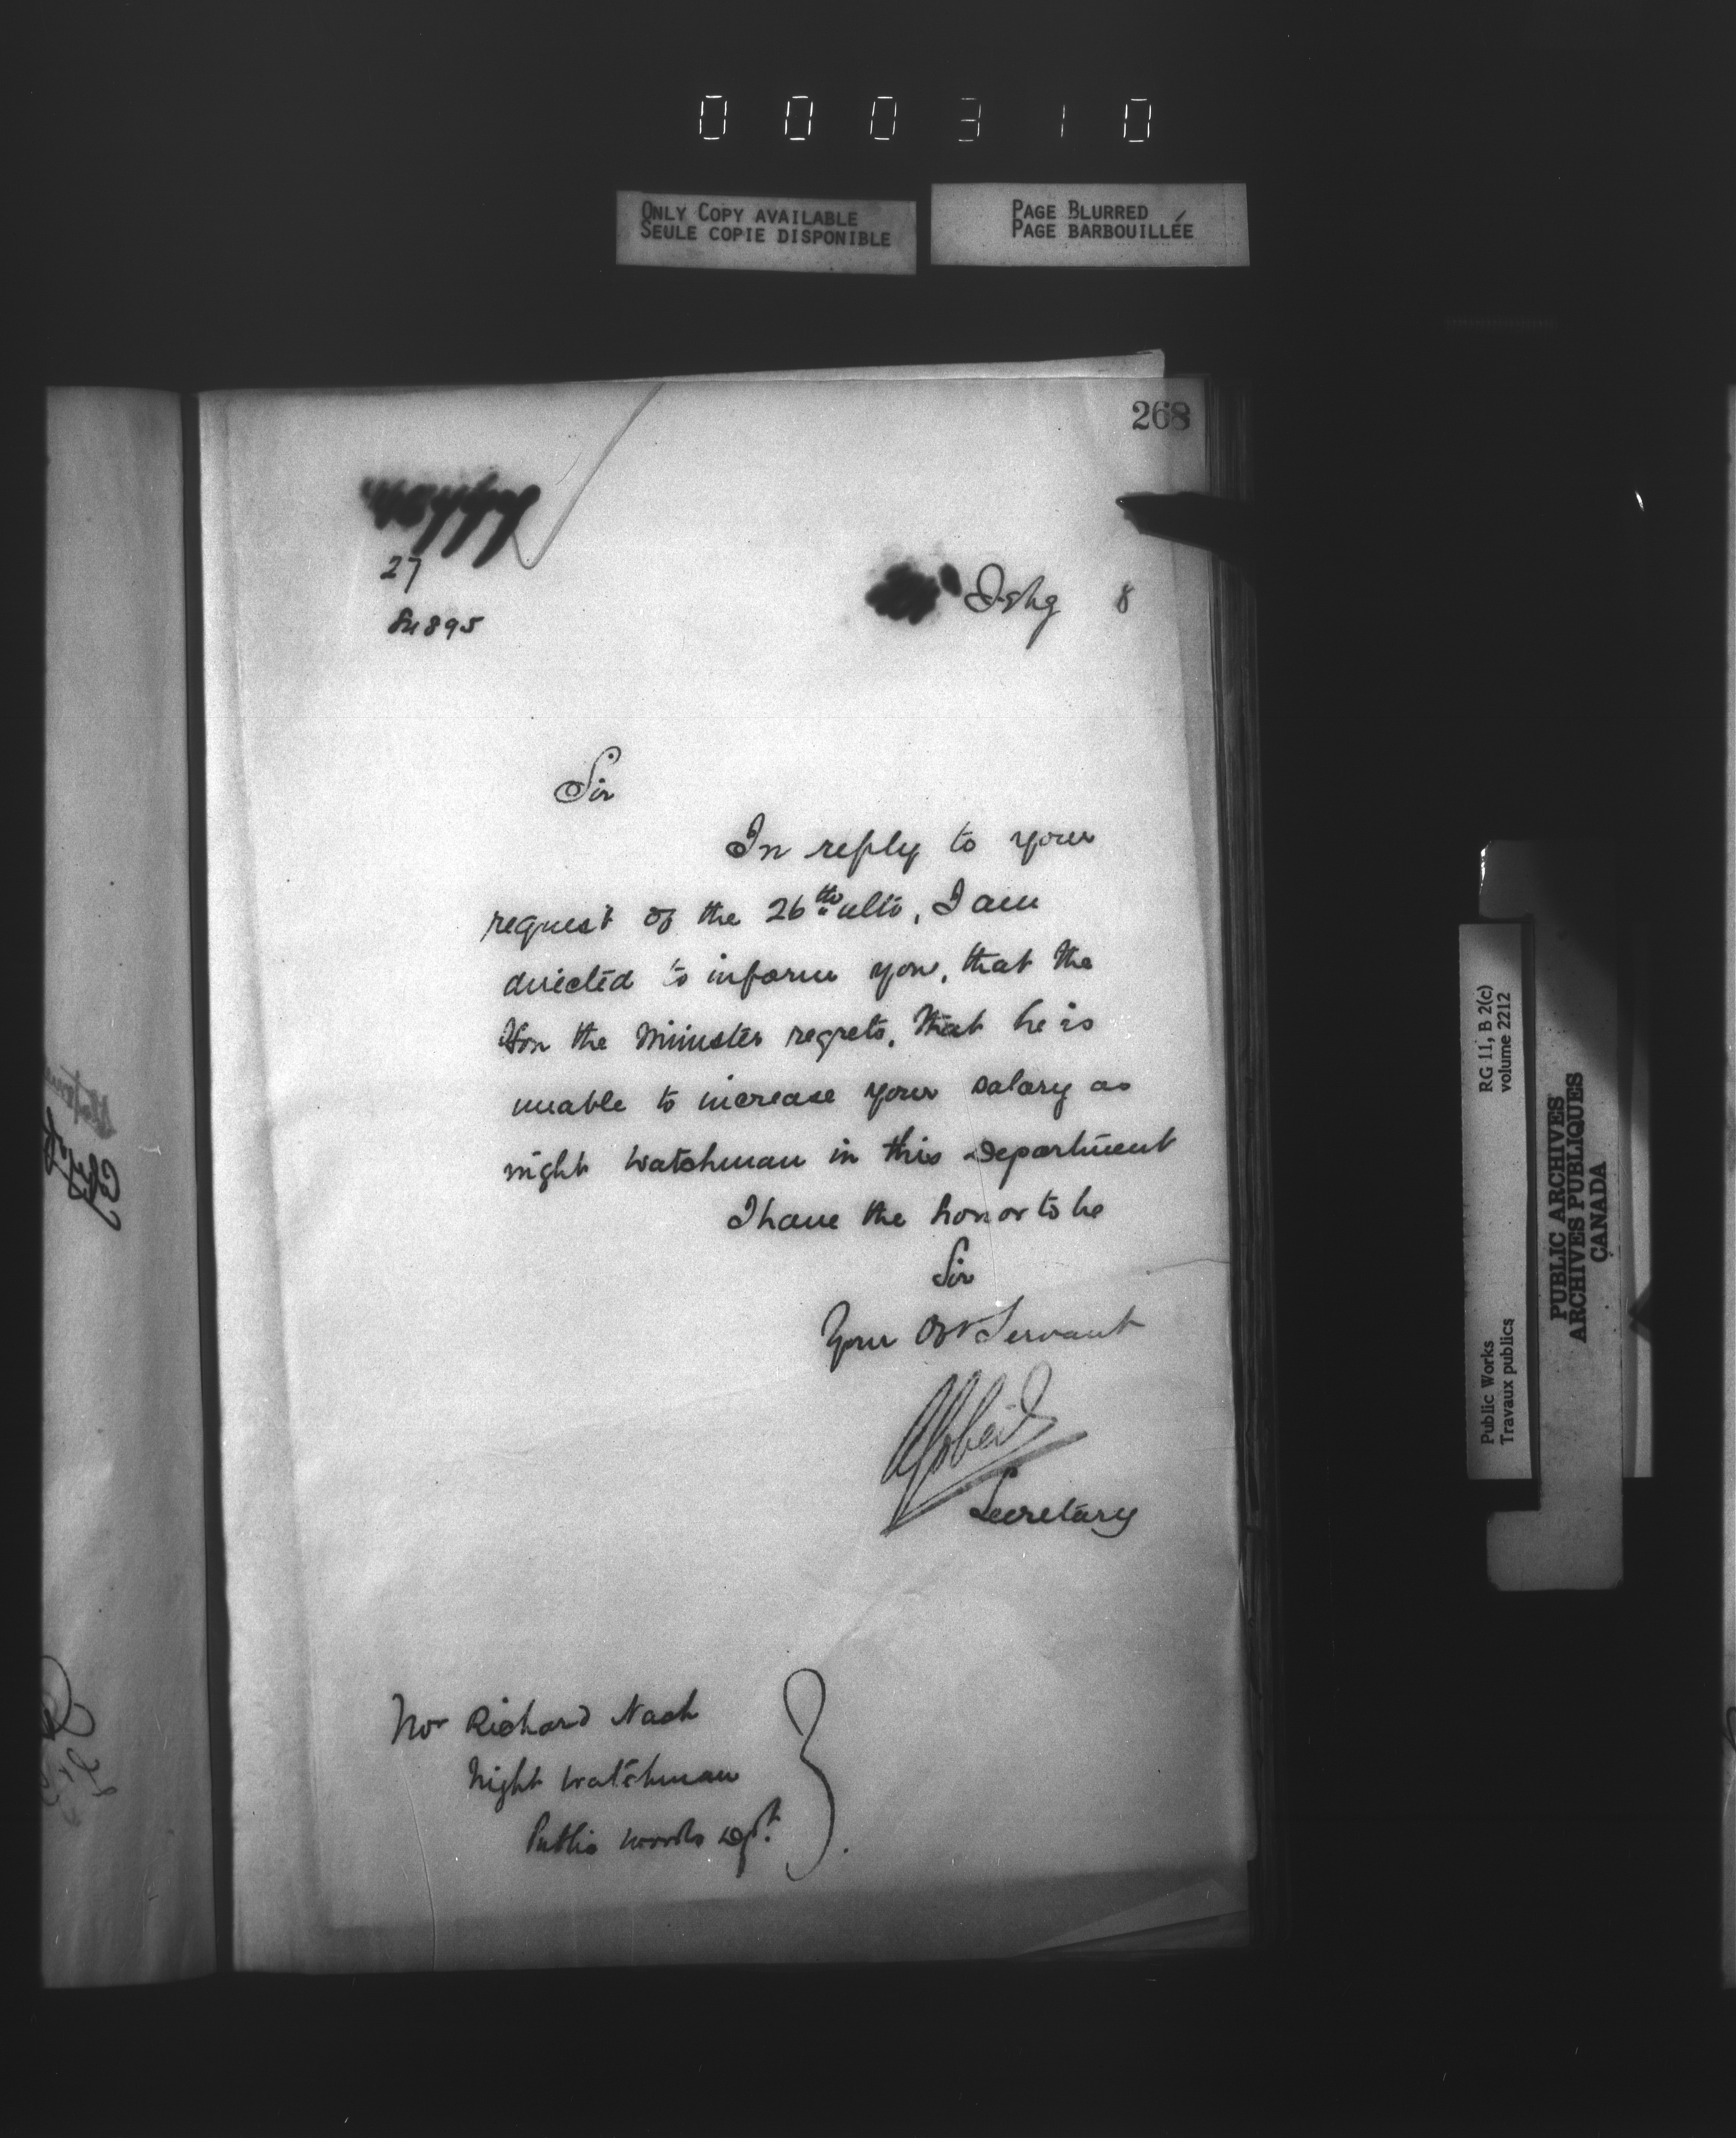 000310
ONLY COPY AVAILABLE
SEULE COPIE DISPONIBLE
PAGE BLURRED
PAGE BARBOUILLÉE
268
27
84895
8
Sir
In reply to your
request of the 26th ulto, I am
directed to inform you, that the
Hon the Minister regrets, that he is
unable to increase your salary as
night watchman in this department
I have the honor to be
Sir
Your Obt Servant
Secretary
Mr Richard Nash
Night Watchman
Public Works Dept.
RG 11, B 2(c)
volume 2212
Public Works
Travaux publics
PUBLIC ARCHIVES
ARCHIVES PUBLIQUES
CANADA